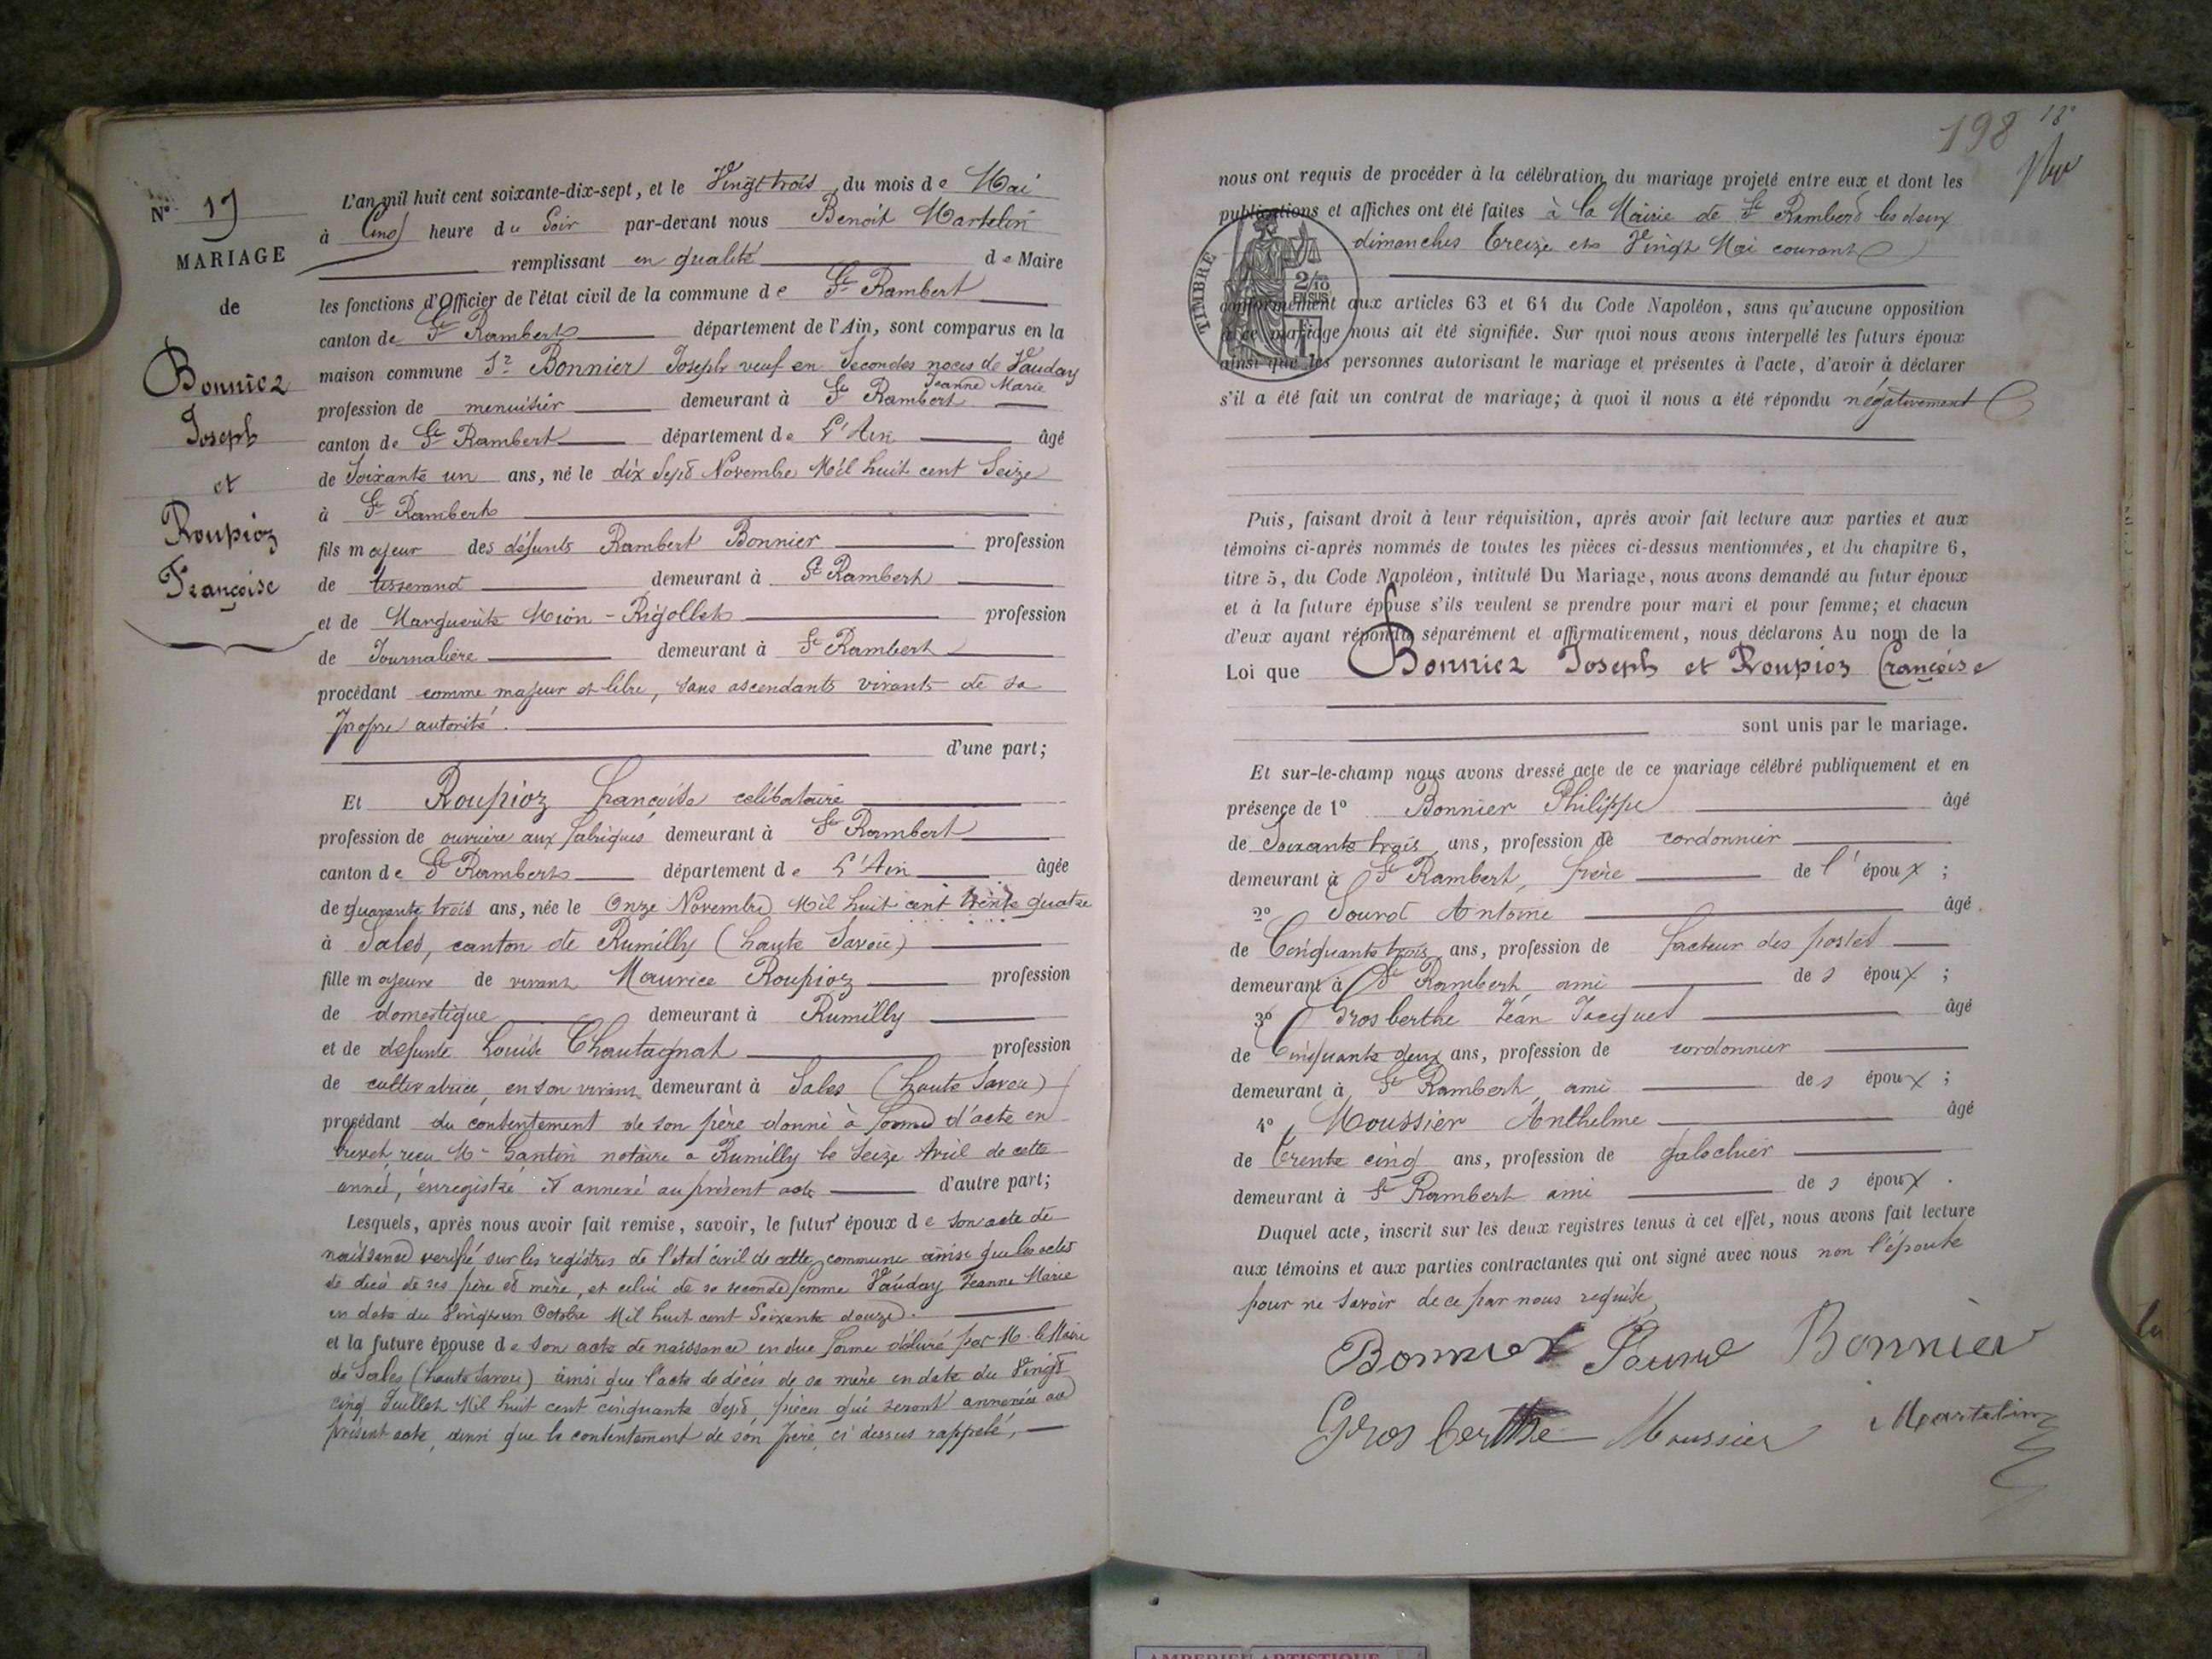 N° 17
MARIAGE
de
Bonnier
Joseph
et
Roupioz
Françoise
L'an mil huit cent soixante-dix-sept, et le Vingt trois du mois de Mai
à Cinq heure du Soir par-devant nous Benoît Martelin
remplissant en qualité de Maire
les fonctions d'Officier de l'état civil de la commune de St Rambert
canton de St Rambert département de l'Ain, sont comparus en la
maison commune Sr Bonnier Joseph veuf en Secondes noces de Vauday
Jeanne Marie
profession de menuisier demeurant à St Rambert
canton de St Rambert département de L'Ain âgé
de Soixante un ans, né le dix Sept Novembre Mil huit cent Seize
à St Rambert
fils majeur des défunts Rambert Bonnier profession
de tisserand demeurant à St Rambert
et de Marguerite Mion-Rigollet profession
de Journalière demeurant à St Rambert
procédant comme majeur et libre, sans ascendants vivants de sa
propre autorité.
d'une part;
Et Roupioz françoise celibataire
profession de ouvrière aux fabriques demeurant à St Rambert
canton de St Rambert département de L'Ain âgée
de quarante trois ans, née le Onze Novembre Mil huit cent trente quatre
à Sales, canton de Rumilly (haute Savoie)
fille majeure de vivant Maurice Roupioz profession
de domestique demeurant à Rumilly
et de defunte Louise Chautagnat profession
de cultivatrice, en son vivant demeurant à Sales (haute Savoie)
procédant du consentement de son père donné à forme d'acte en
brevet reçu Me Gantin notaire a Rumilly le Seize Avril de cette
année, enregistré et annexé au présent acte d'autre part;
Lesquels, après nous avoir fait remise, savoir, le futur époux de son acte de
naissance verifié sur les registres de l'état civil de cette commune ainsi que les actes
de décè de ses père et mère, et celui de sa seconde femme Vauday Jeanne Marie
en date du Vingt un Octobre Mil huit cent Soixante douze.
et la future épouse de son acte de naissance en due forme délivré par M. le Maire
de Sales (haute Savoie) ainsi que l'acte de décès de sa mère en date du Vingt
cinq Juillet Mil huit cent cinquante Sept, pièces qui seront annexées au
présent acte, ainsi que le consentement de son père, ci dessus rappelé,
198
18°
nous ont requis de procéder à la célébration du mariage projeté entre eux et dont les
publications et affiches ont été faites à la Mairie de St Rambert les deux
dimanches treize et Vingt Mai courant
TIMBRE
2/10
EN SUS
conformément aux articles 63 et 64 du Code Napoléon, sans qu'aucune opposition
à ce mariage nous ait été signifiée. Sur quoi nous avons interpellé les futurs époux
ainsi que les personnes autorisant le mariage et présentes à l'acte, d'avoir à déclarer
s'il a été fait un contrat de mariage; à quoi il nous a été répondu négativement
Puis, faisant droit à leur réquisition, après avoir fait lecture aux parties et aux
témoins ci-après nommés de toutes les pièces ci-dessus mentionnées, et du chapitre 6,
titre 5, du Code Napoléon, intitulé Du Mariage, nous avons demandé au futur époux
et à la future épouse s'ils veulent se prendre pour mari et pour femme; et chacun
d'eux ayant répondu séparément et affirmativement, nous déclarons Au nom de la
Loi que Bonnier Joseph et Roupioz Françoise
sont unis par le mariage.
Et sur-le-champ nous avons dressé acte de ce mariage célébré publiquement et en
présence de 1° Bonnier Philippe âgé
de Soixante trois ans, profession de cordonnier
demeurant à St Rambert, frère de l'époux ;
2° Antoine âgé
de Cinquante trois ans, profession de facteur des postes
demeurant à St Rambert, ami des époux ;
3° Grosberthe Jean Jacques âgé
de Cinquante deux ans, profession de cordonnier
demeurant à St Rambert, ami des époux ;
4° Moussier Anthelme âgé
de trente cinq ans, profession de galochier
demeurant à St Rambert ami des époux.
Duquel acte, inscrit sur les deux registres tenus à cet effet, nous avons fait lecture
aux témoins et aux parties contractantes qui ont signé avec nous non l'épouse
pour ne Savoir de ce par nous requise,
Bonnier Bonnier
Gros berthe Moussier Martelin
AMBERIEU ARTISTIQUE